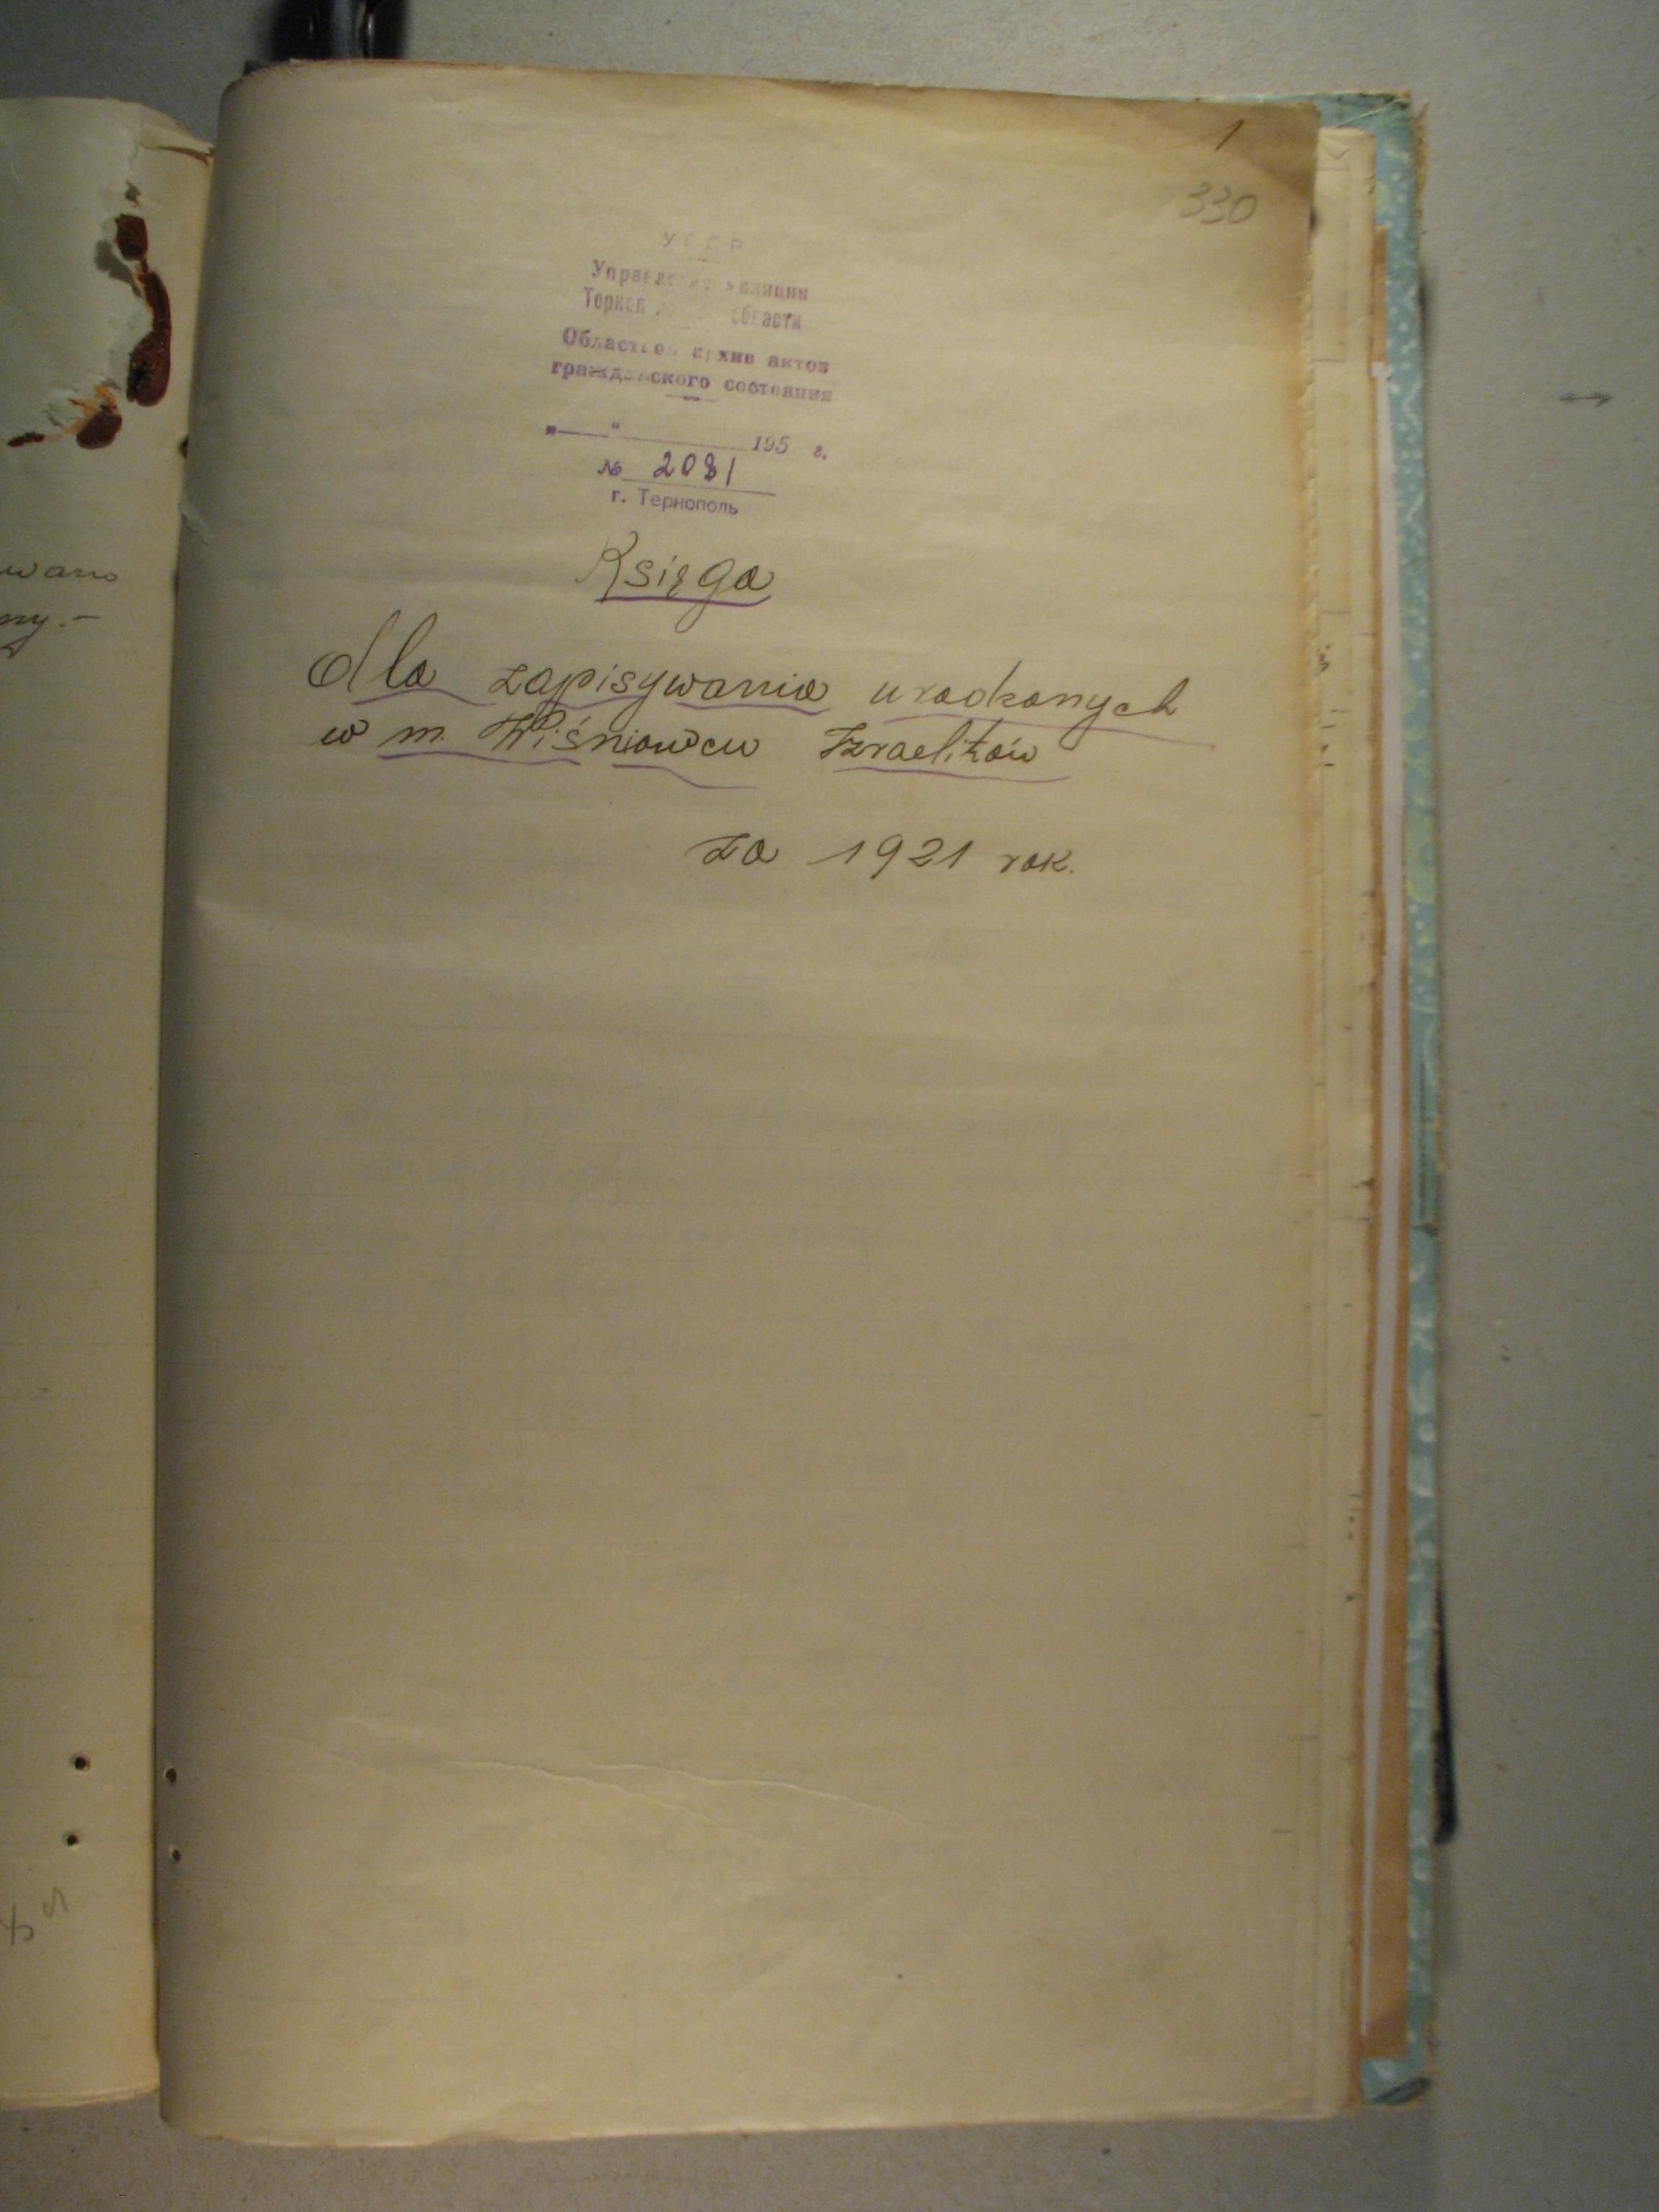 1
330
УССР
Управление милиции
Тернопольской области
Областной архив актов
гражданского состояния
"——" 195 г.
№ 2081
г. Тернополь
Księga
dla zapisywania urodzonych
w m. Wiśniowcu Izraelitów
za 1921 rok.